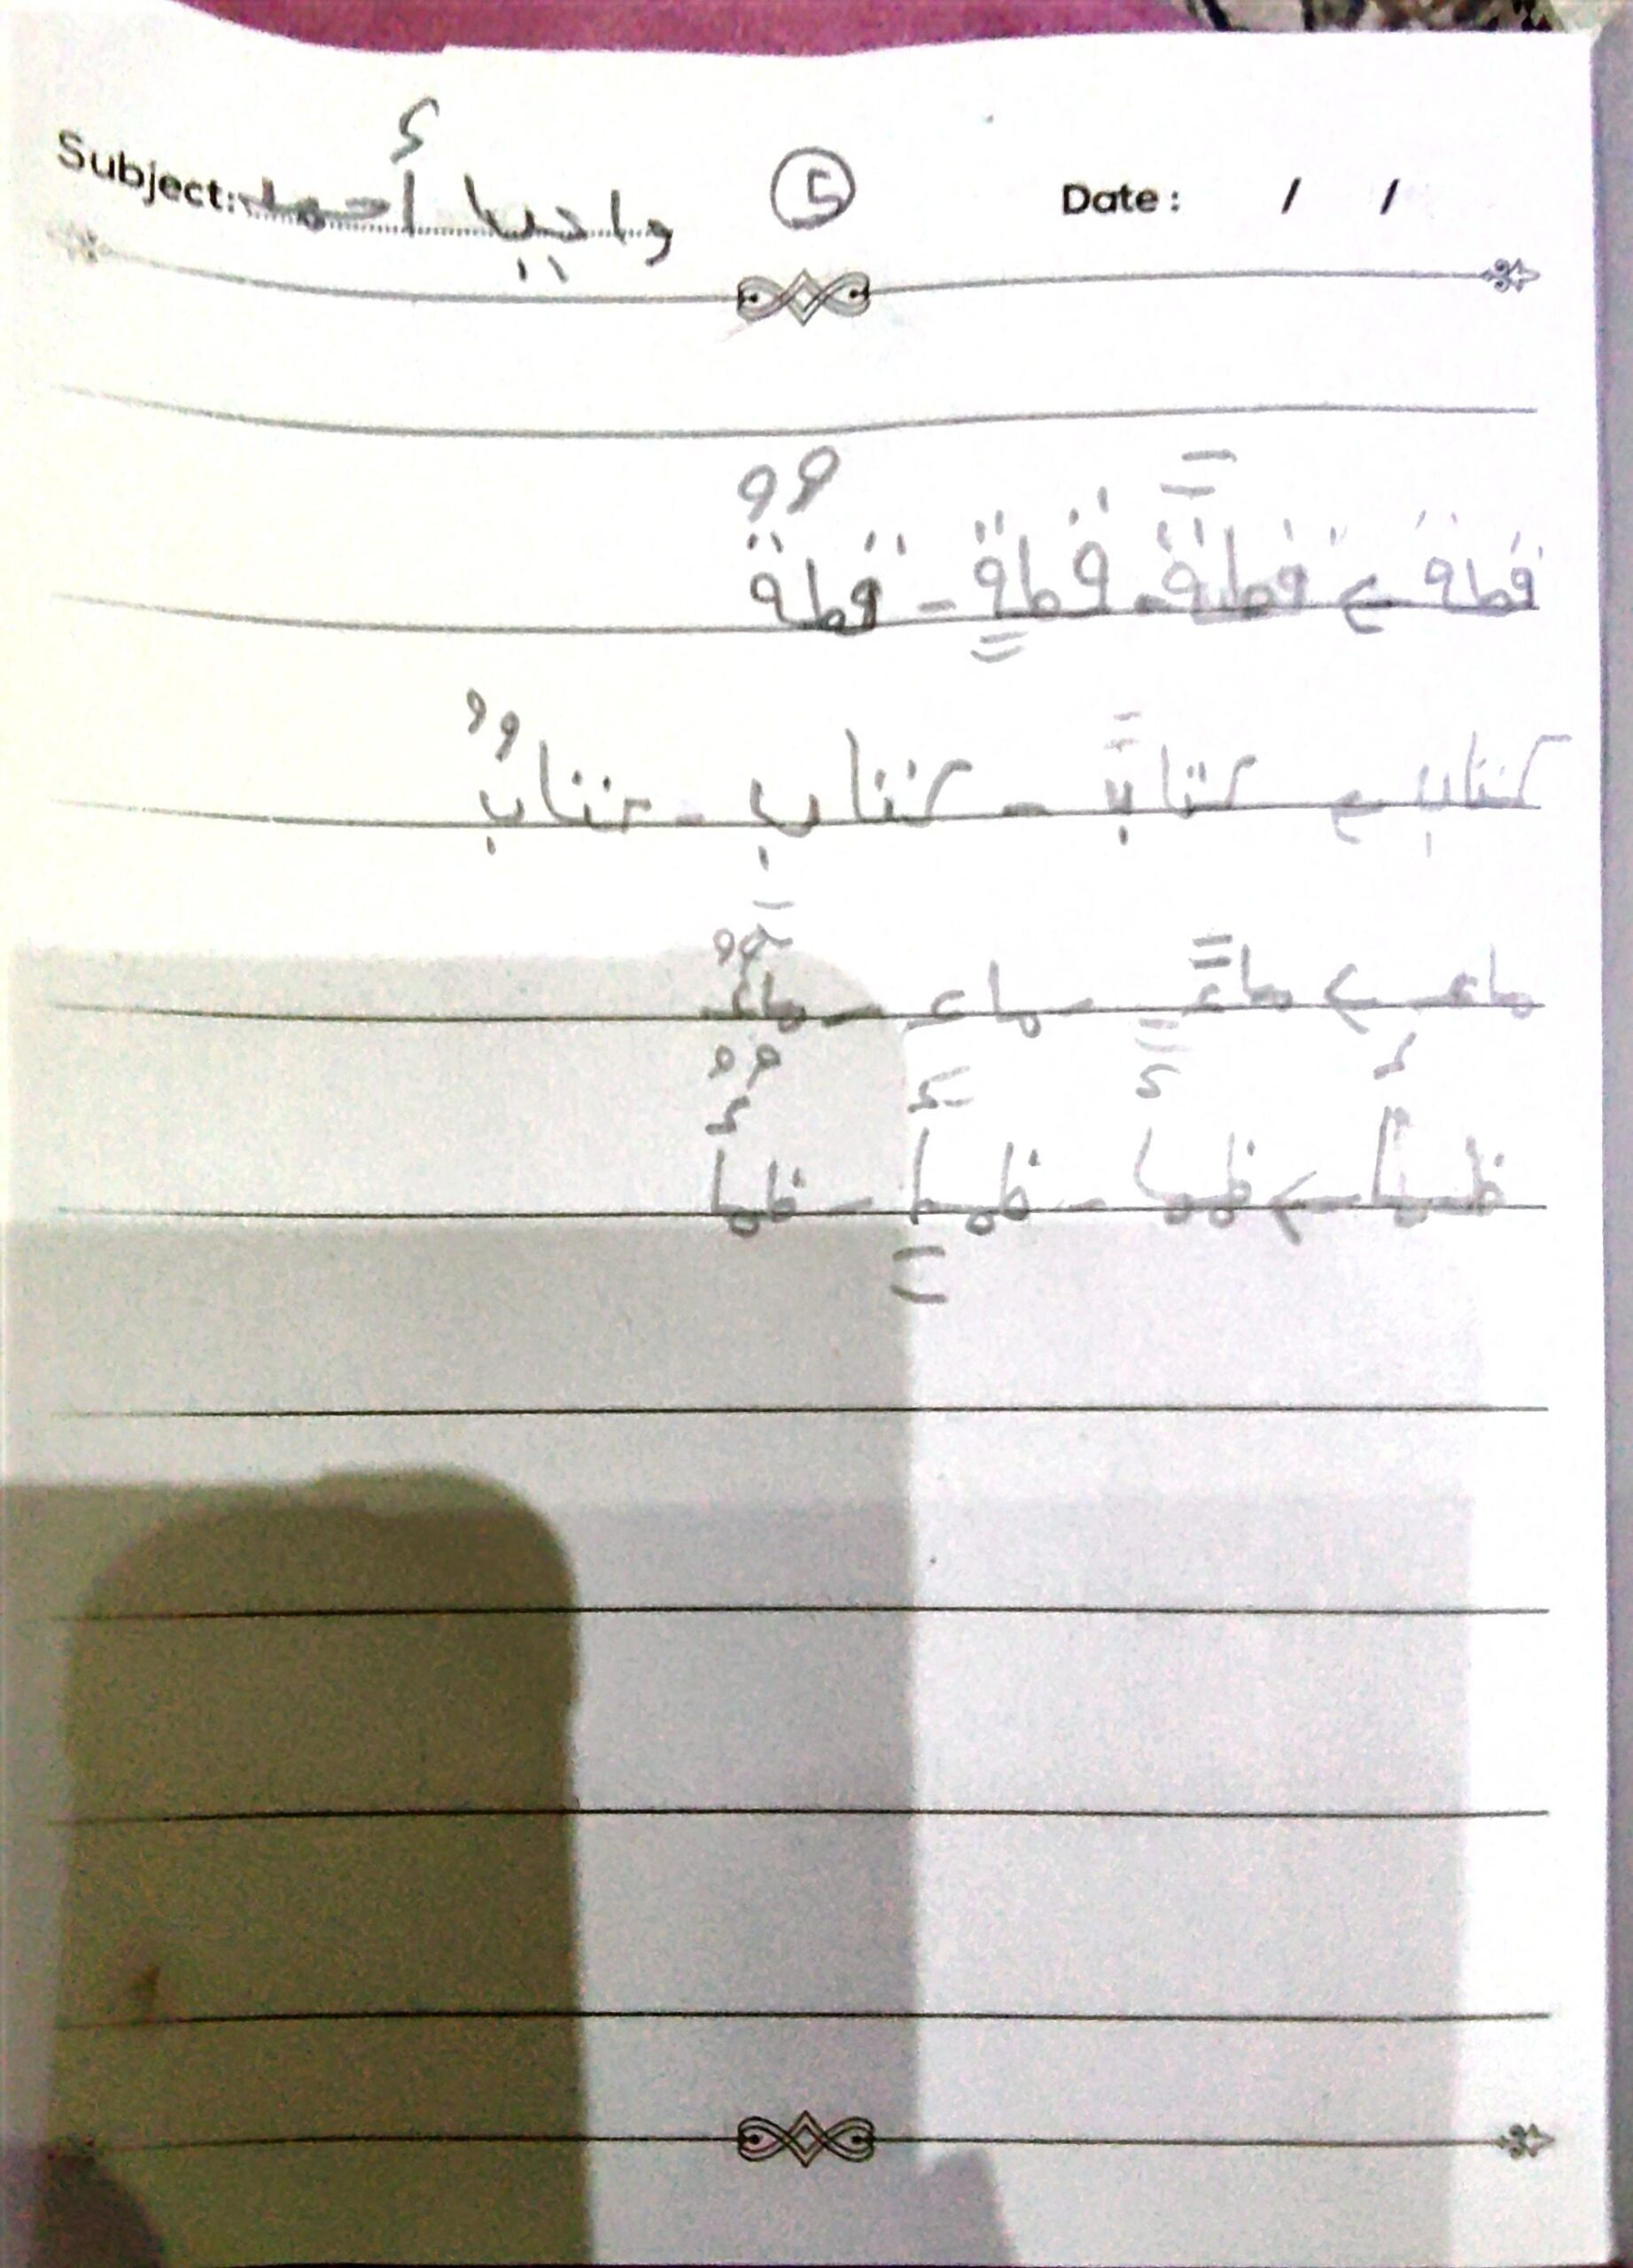 Subject: داجيا أحمد ⑤ Date: / /
قطة ← قطةً - قطةٍ - قطةٌ
كتاب ← كتابً - كتابٍ - كتابٌ
ماء ← ماءً - ماءٍ - ماءٌ
ظمأ ← ظمأً - ظمأٍ - ظمأٌ